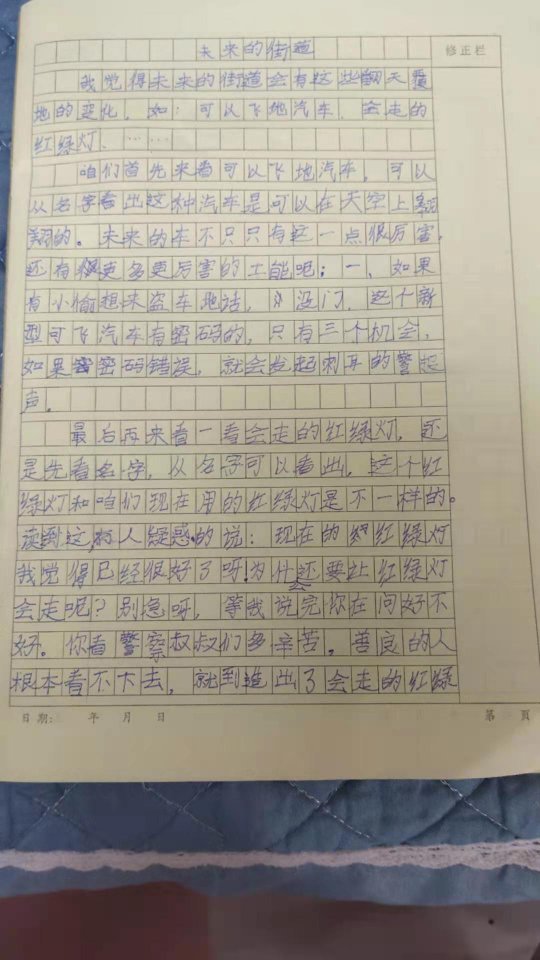 未来的街道
修正栏
我觉得未来的街道会有这些翻天覆
地的变化，如：可以飞地汽车、会走的
红绿灯、……
咱们首先来看可以飞地汽车，可以
从名字看出这种汽车是可以在天空上翱
翔的。未来的车不只只有这一点很厉害，
还有很更多更厉害的工能呢：一、如果
有小偷想来盗车地话，没门，这个新
型可飞汽车有密码的，只有三个机会，
如果密密码错误，就会发起刺耳的警报
声。
最后再来看一看会走的红绿灯，还
是先看名字，从名字可以看出，这个红
绿灯和咱们现在用的红绿灯是不一样的。
读到这，有人疑惑的说：现在的红绿灯
我觉得已经很好了呀为什还要让红绿灯
会走呢？别急呀，等我说完你在问好不
好。你看警察叔叔们多辛苦，善良的人
根本看不下去，就到造出了会走的红绿
日期： 年 月 日
第 页